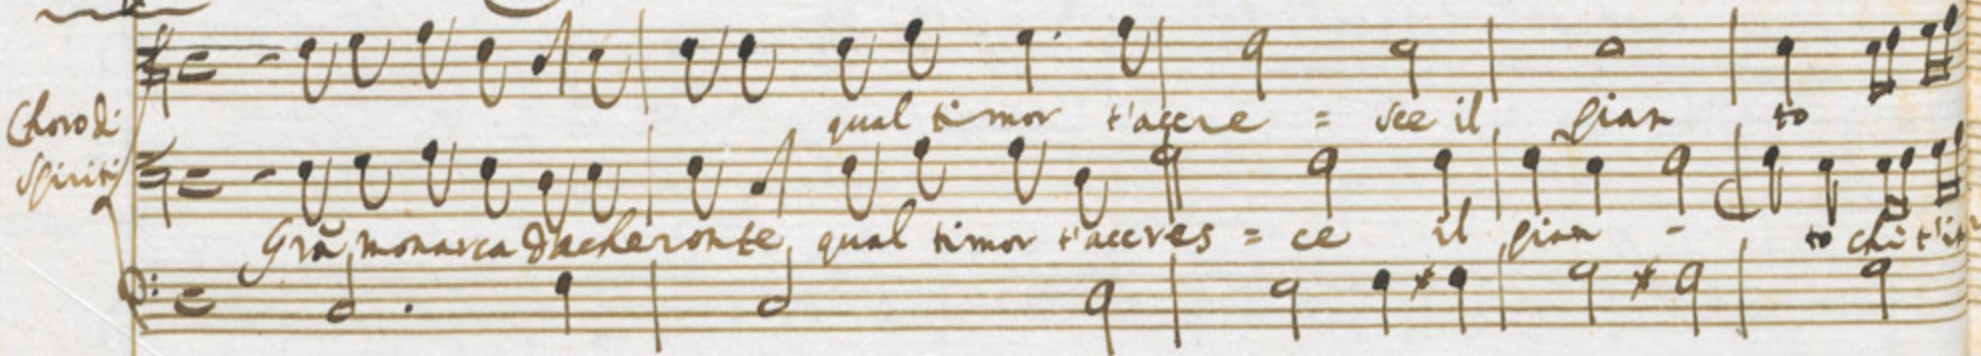 Choro di
Spiriti
qual timor t'accre = sce il pian to
Grã monarca d'acheronte qual timor t'accres = ce il pian - to chi t'in